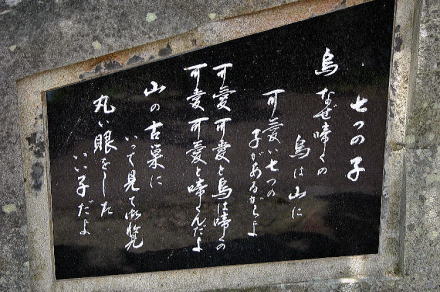 七つの子
烏 なぜ啼くの
烏は山に
可愛い七つの
子があるからよ
可愛 可愛と烏は啼くの
可愛 可愛と啼くんだよ
山の古巣に
いって見て御覧
丸い眼をした
いい子だよ